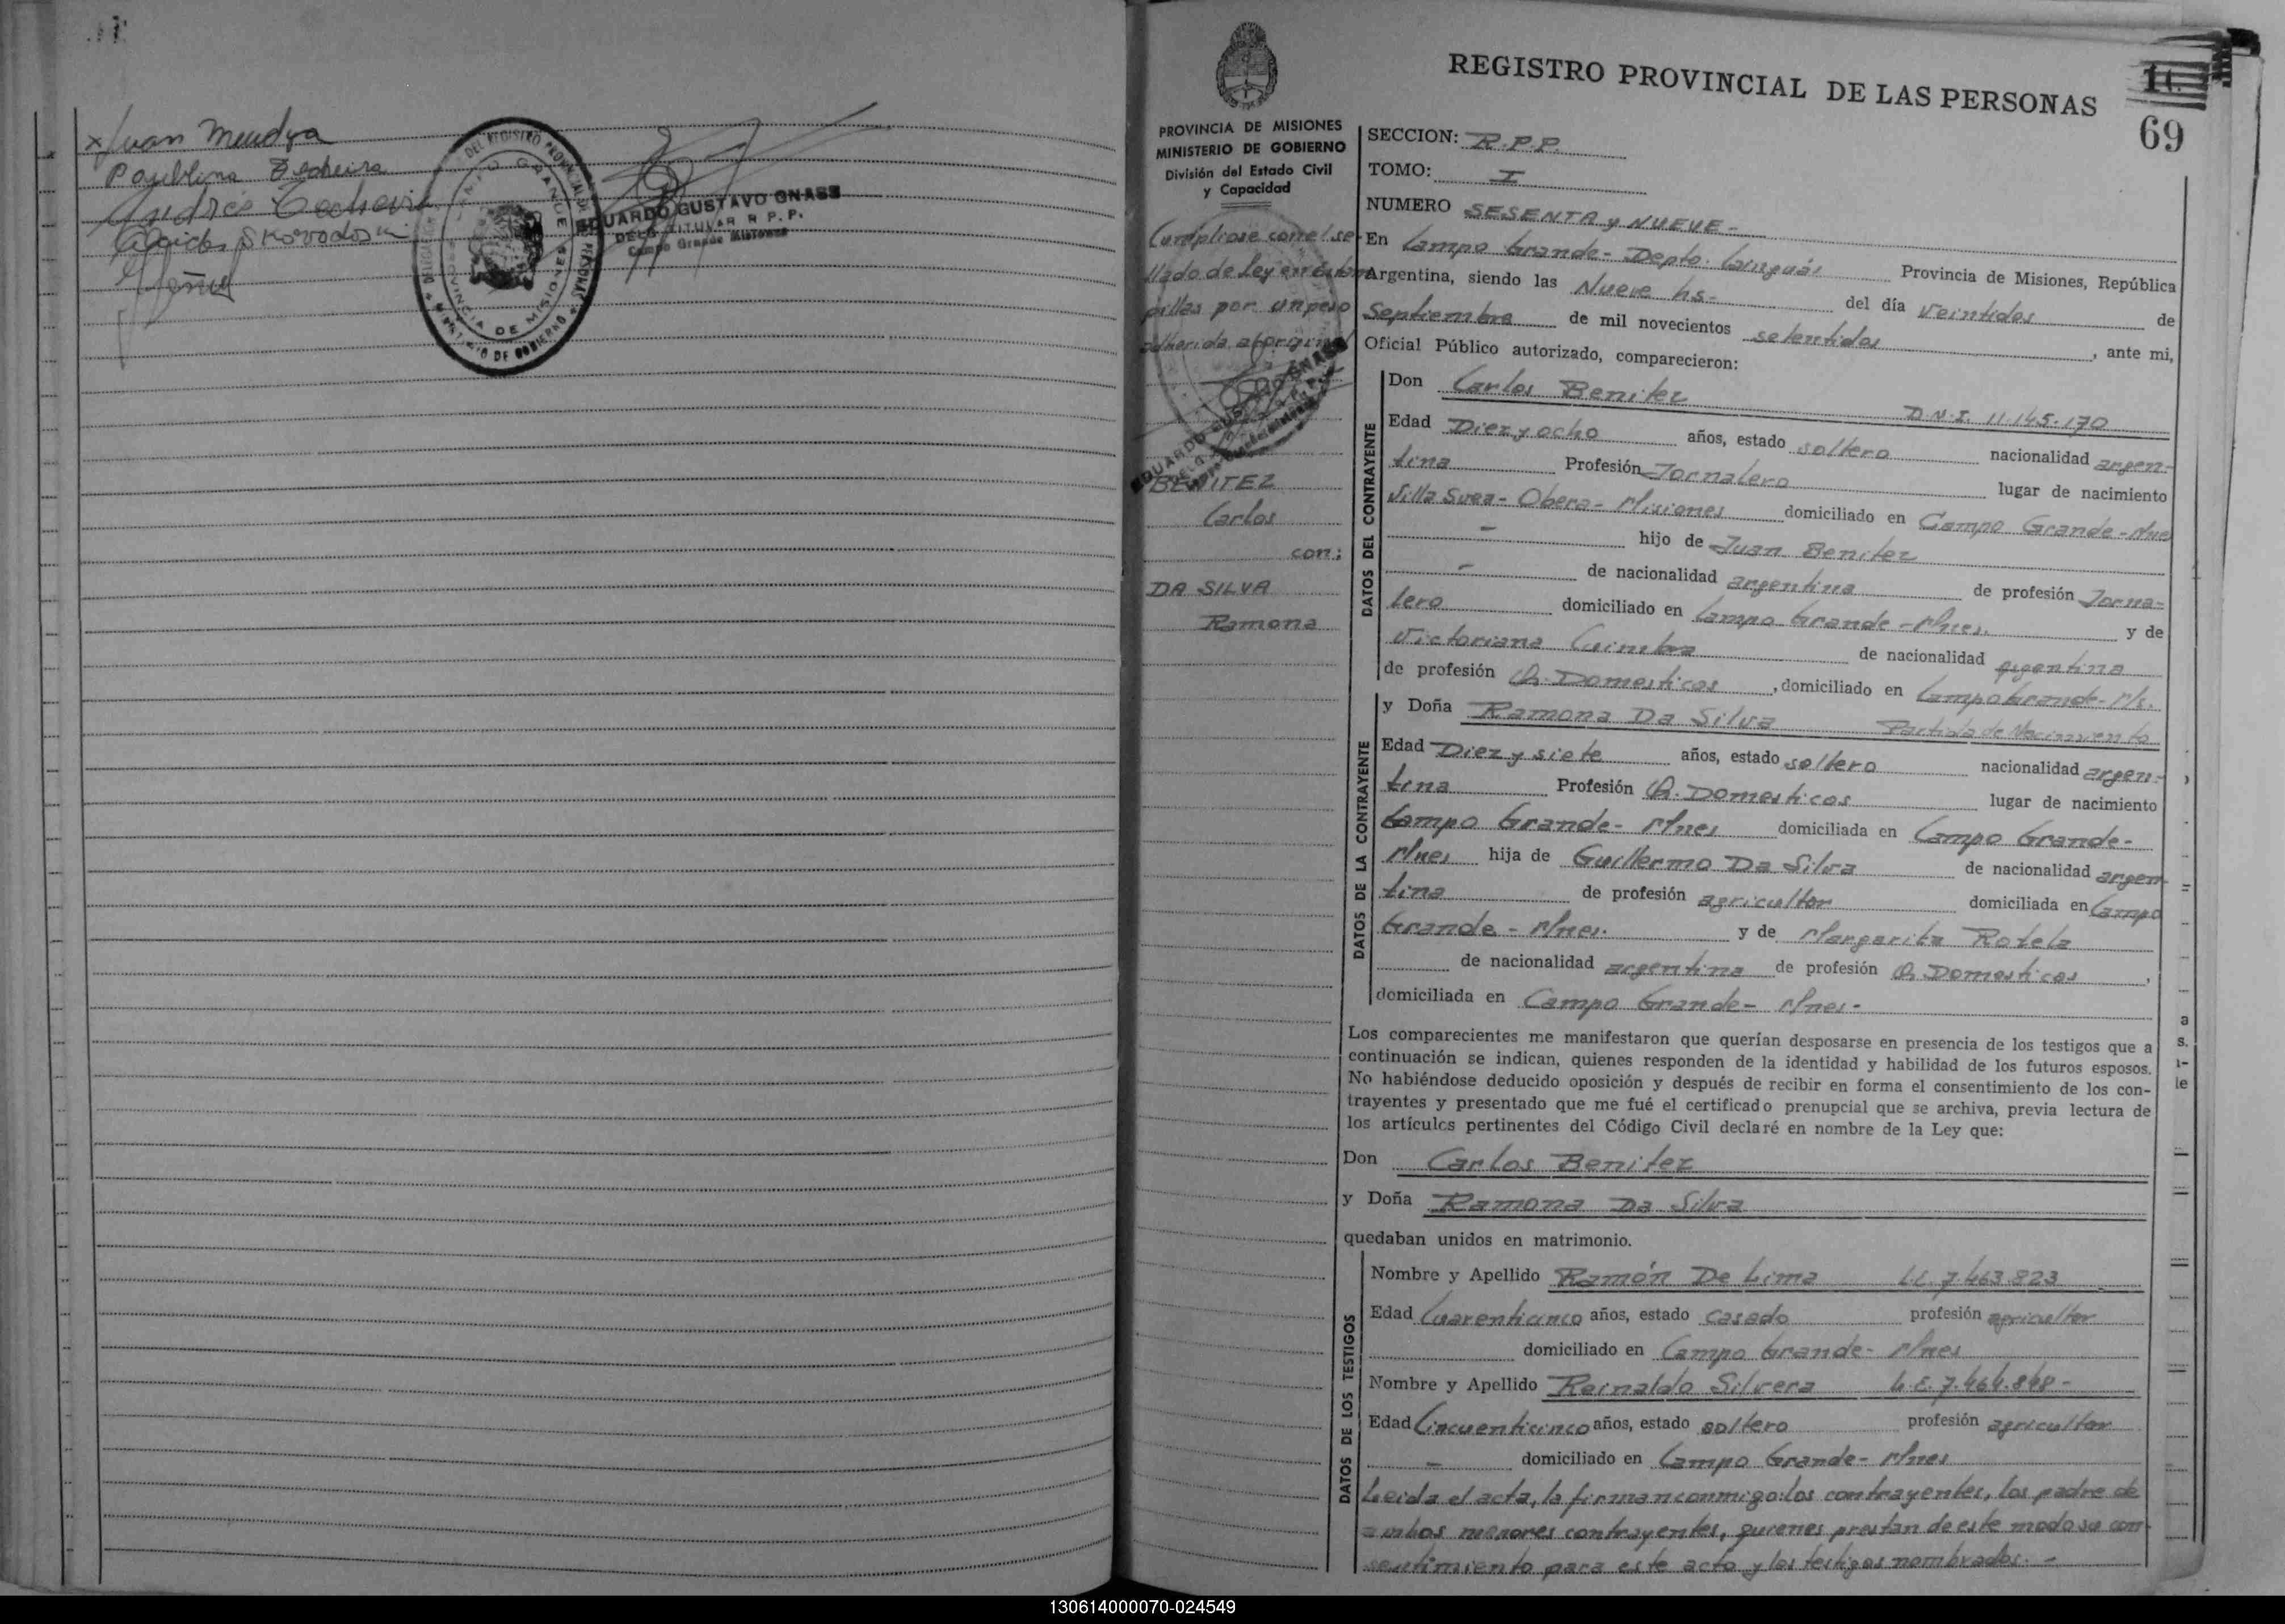 x Juan Mendoza
Andrés
EDUARDO GUSTAVO GNASS
DELG. TITULAR R. P. P.
Campo Grande Misiones
DEL REGISTRO PROVINCIAL DE PERSONAS
CAMPO GRANDE
PROVINCIA DE MISIONES
MINISTERIO DE GOBIERNO
REGISTRO PROVINCIAL DE LAS PERSONAS
69
PROVINCIA DE MISIONES
MINISTERIO DE GOBIERNO
División del Estado Civil
y Capacidad
Cumpliose con el se-
llado de Ley en estam
pillas por un peso
adherida al original
EDUARDO GUSTAVO GNASS
BENITEZ
Carlos
con:
DA SILVA
Ramona
SECCION: R.P.P.
TOMO: I
NUMERO SESENTA y NUEVE -
En Campo Grande - Depto. Cainguás Provincia de Misiones, República
Argentina, siendo las Nueve hs- del día Veintidos de
Septiembre de mil novecientos setentidos, ante mi,
Oficial Público autorizado, comparecieron:
DATOS DEL CONTRAYENTE
Don Carlos Benitez D.N.I. 11.145.170
Edad Diez y ocho años, estado soltero nacionalidad argen-
tina Profesión Jornalero lugar de nacimiento
Villa Svea - Obera - Misiones domiciliado en Campo Grande - Mnes
- hijo de Juan Benitez
- de nacionalidad argentina de profesión Jorna-
lero domiciliado en Campo Grande - Mnes. y de
Victoriana Cuimbra de nacionalidad argentina
de profesión Q. Domesticos, domiciliado en Campo Grande - Ms.
DATOS DE LA CONTRAYENTE
y Doña Ramona Da Silva Partida de Nacimiento
Edad Diez y siete años, estado soltero nacionalidad argen-
tina Profesión Q. Domesticos lugar de nacimiento
Campo Grande - Mnes domiciliada en Campo Grande -
Mnes hija de Guillermo Da Silva de nacionalidad argen-
tina de profesión agricultor domiciliada en Campo
Grande - Mnes. y de Margarita Rotela
de nacionalidad argentina de profesión Q. Domesticos,
domiciliada en Campo Grande - Mnes -
Los comparecientes me manifestaron que querían desposarse en presencia de los testigos que a
continuación se indican, quienes responden de la identidad y habilidad de los futuros esposos.
No habiéndose deducido oposición y después de recibir en forma el consentimiento de los con-
trayentes y presentado que me fué el certificado prenupcial que se archiva, previa lectura de
los artículos pertinentes del Código Civil declaré en nombre de la Ley que:
Don Carlos Benitez
y Doña Ramona Da Silva
quedaban unidos en matrimonio.
DATOS DE LOS TESTIGOS
Nombre y Apellido Ramón De Lima L.E. 7.463.823
Edad Cuarenticinco años, estado casado profesión agricultor
domiciliado en Campo Grande - Mnes
Nombre y Apellido Reinaldo Silvera L.E. 7.464.848 -
Edad Cincuenticinco años, estado soltero profesión agricultor
- domiciliado en Campo Grande - Mnes
Leida el acta, la firman conmigo: los contrayentes, los padre de
ambos menores contrayentes, quienes prestan de este modo su con-
sentimiento para este acto y los testigos nombrados. -
130614000070-024549